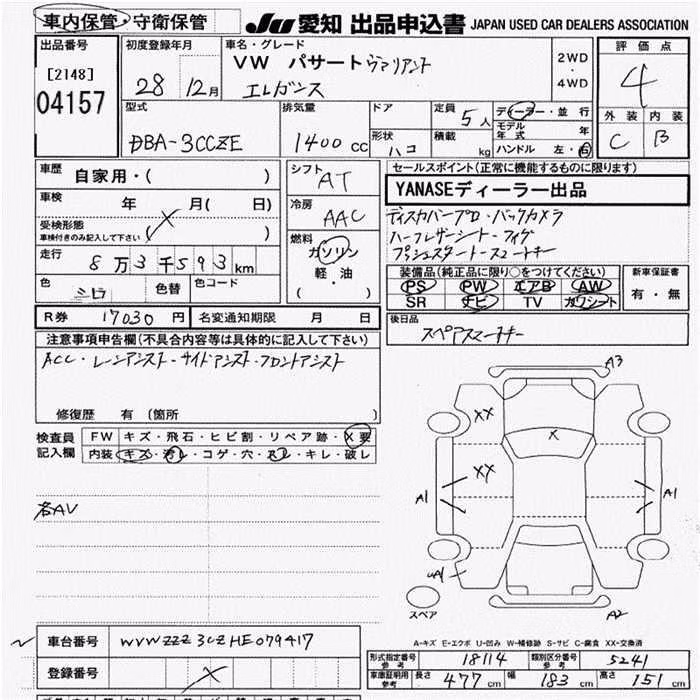 車内保管・守衛保管 JU 愛知 出品申込書 JAPAN USED CAR DEALERS ASSOCIATION
出品番号 初度登録年月 車名・グレード 2WD・4WD 評価点
[2148] 04157 28 12月 VW パサートヴァリアント エレガンス 4
型式 排気量 ドア 定員 5人 ディーラー・並行 外装 内装
DBA-3CCZE 1400cc 形状 ハコ 積載 kg モデル年式 年 C B
ハンドル 左・右
車歴 自家用・( ) シフト AT セールスポイント(正常に機能するものに限ります)
車検 年 月( 日) 冷房 AAC YANASEディーラー出品
受検形態 車検付きのみ記入して下さい ( X ) ディスカバープロ・バックカメラ
燃料 ガソリン ハーフレザーシート・
軽・油 プッシュスタート・スマートキー
( )
走行 8万3千593km 装備品(純正品に限り○をつけてください) 新車保証書
色 シロ 色替 色コード PS PW エアB AW 有・無
SR ナビ TV カワシート
R券 17030円 名変通知期限 月 日 後日品
スペアスマートキー
注意事項申告欄(不具合内容等は具体的に記入して下さい)
ACC・レーンアシスト・サイドアシスト・フロントアシスト
修復歴 有 (箇所 )
検査員記入欄 FW キズ・飛石・ヒビ割・リペア跡・X要
内装 キズ・汚レ・コゲ・穴・スレ・キレ・破レ
A3
XX
X
XX
A1 A1
名AV
スペア A2
A-キズ E-エクボ U-凹み W-補修跡 S-サビ C-腐食 XX-交換済
車台番号 WVWZZZ3CZHE079417
登録番号 X
形式指定番号 参考 18114 類別区分番号 参考 5241
車庫証明用 参考 長さ 477cm 幅 183cm 高さ 151cm